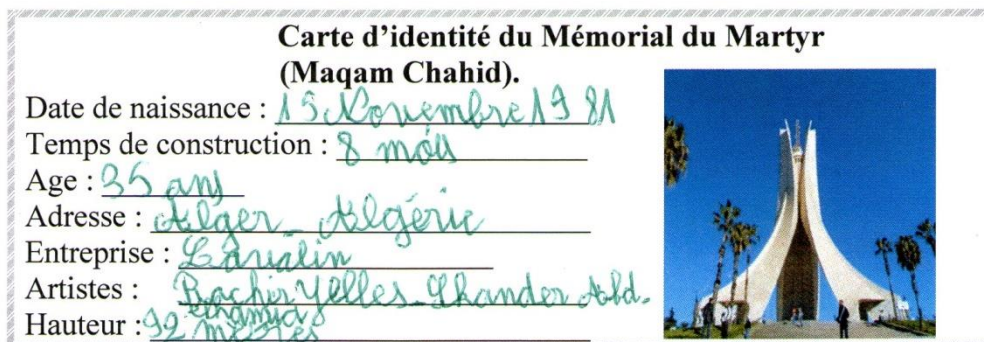 Carte d’identité du Mémorial du Martyr
(Maqam Chahid).
Date de naissance : 15 Novembre 1981
Temps de construction : 8 mois
Age : 35 ans
Adresse : Alger_ Algérie
Entreprise : Lavalin
Artistes : Bachir Yelles_ Skander Abd.
elhamid
Hauteur : 92 mètres